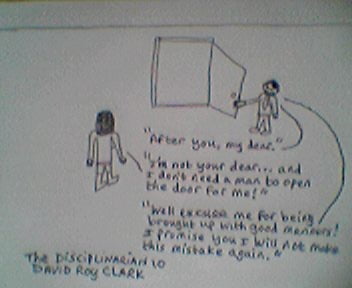 "After you, my dear."
"I'm not your dear... and
I don't need a man to open
the door for me!"
"Well excuse me for being
brought up with good manners!
I promise you I will not make
this mistake again."
THE DISCIPLINARIAN 10
DAVID ROY CLARK